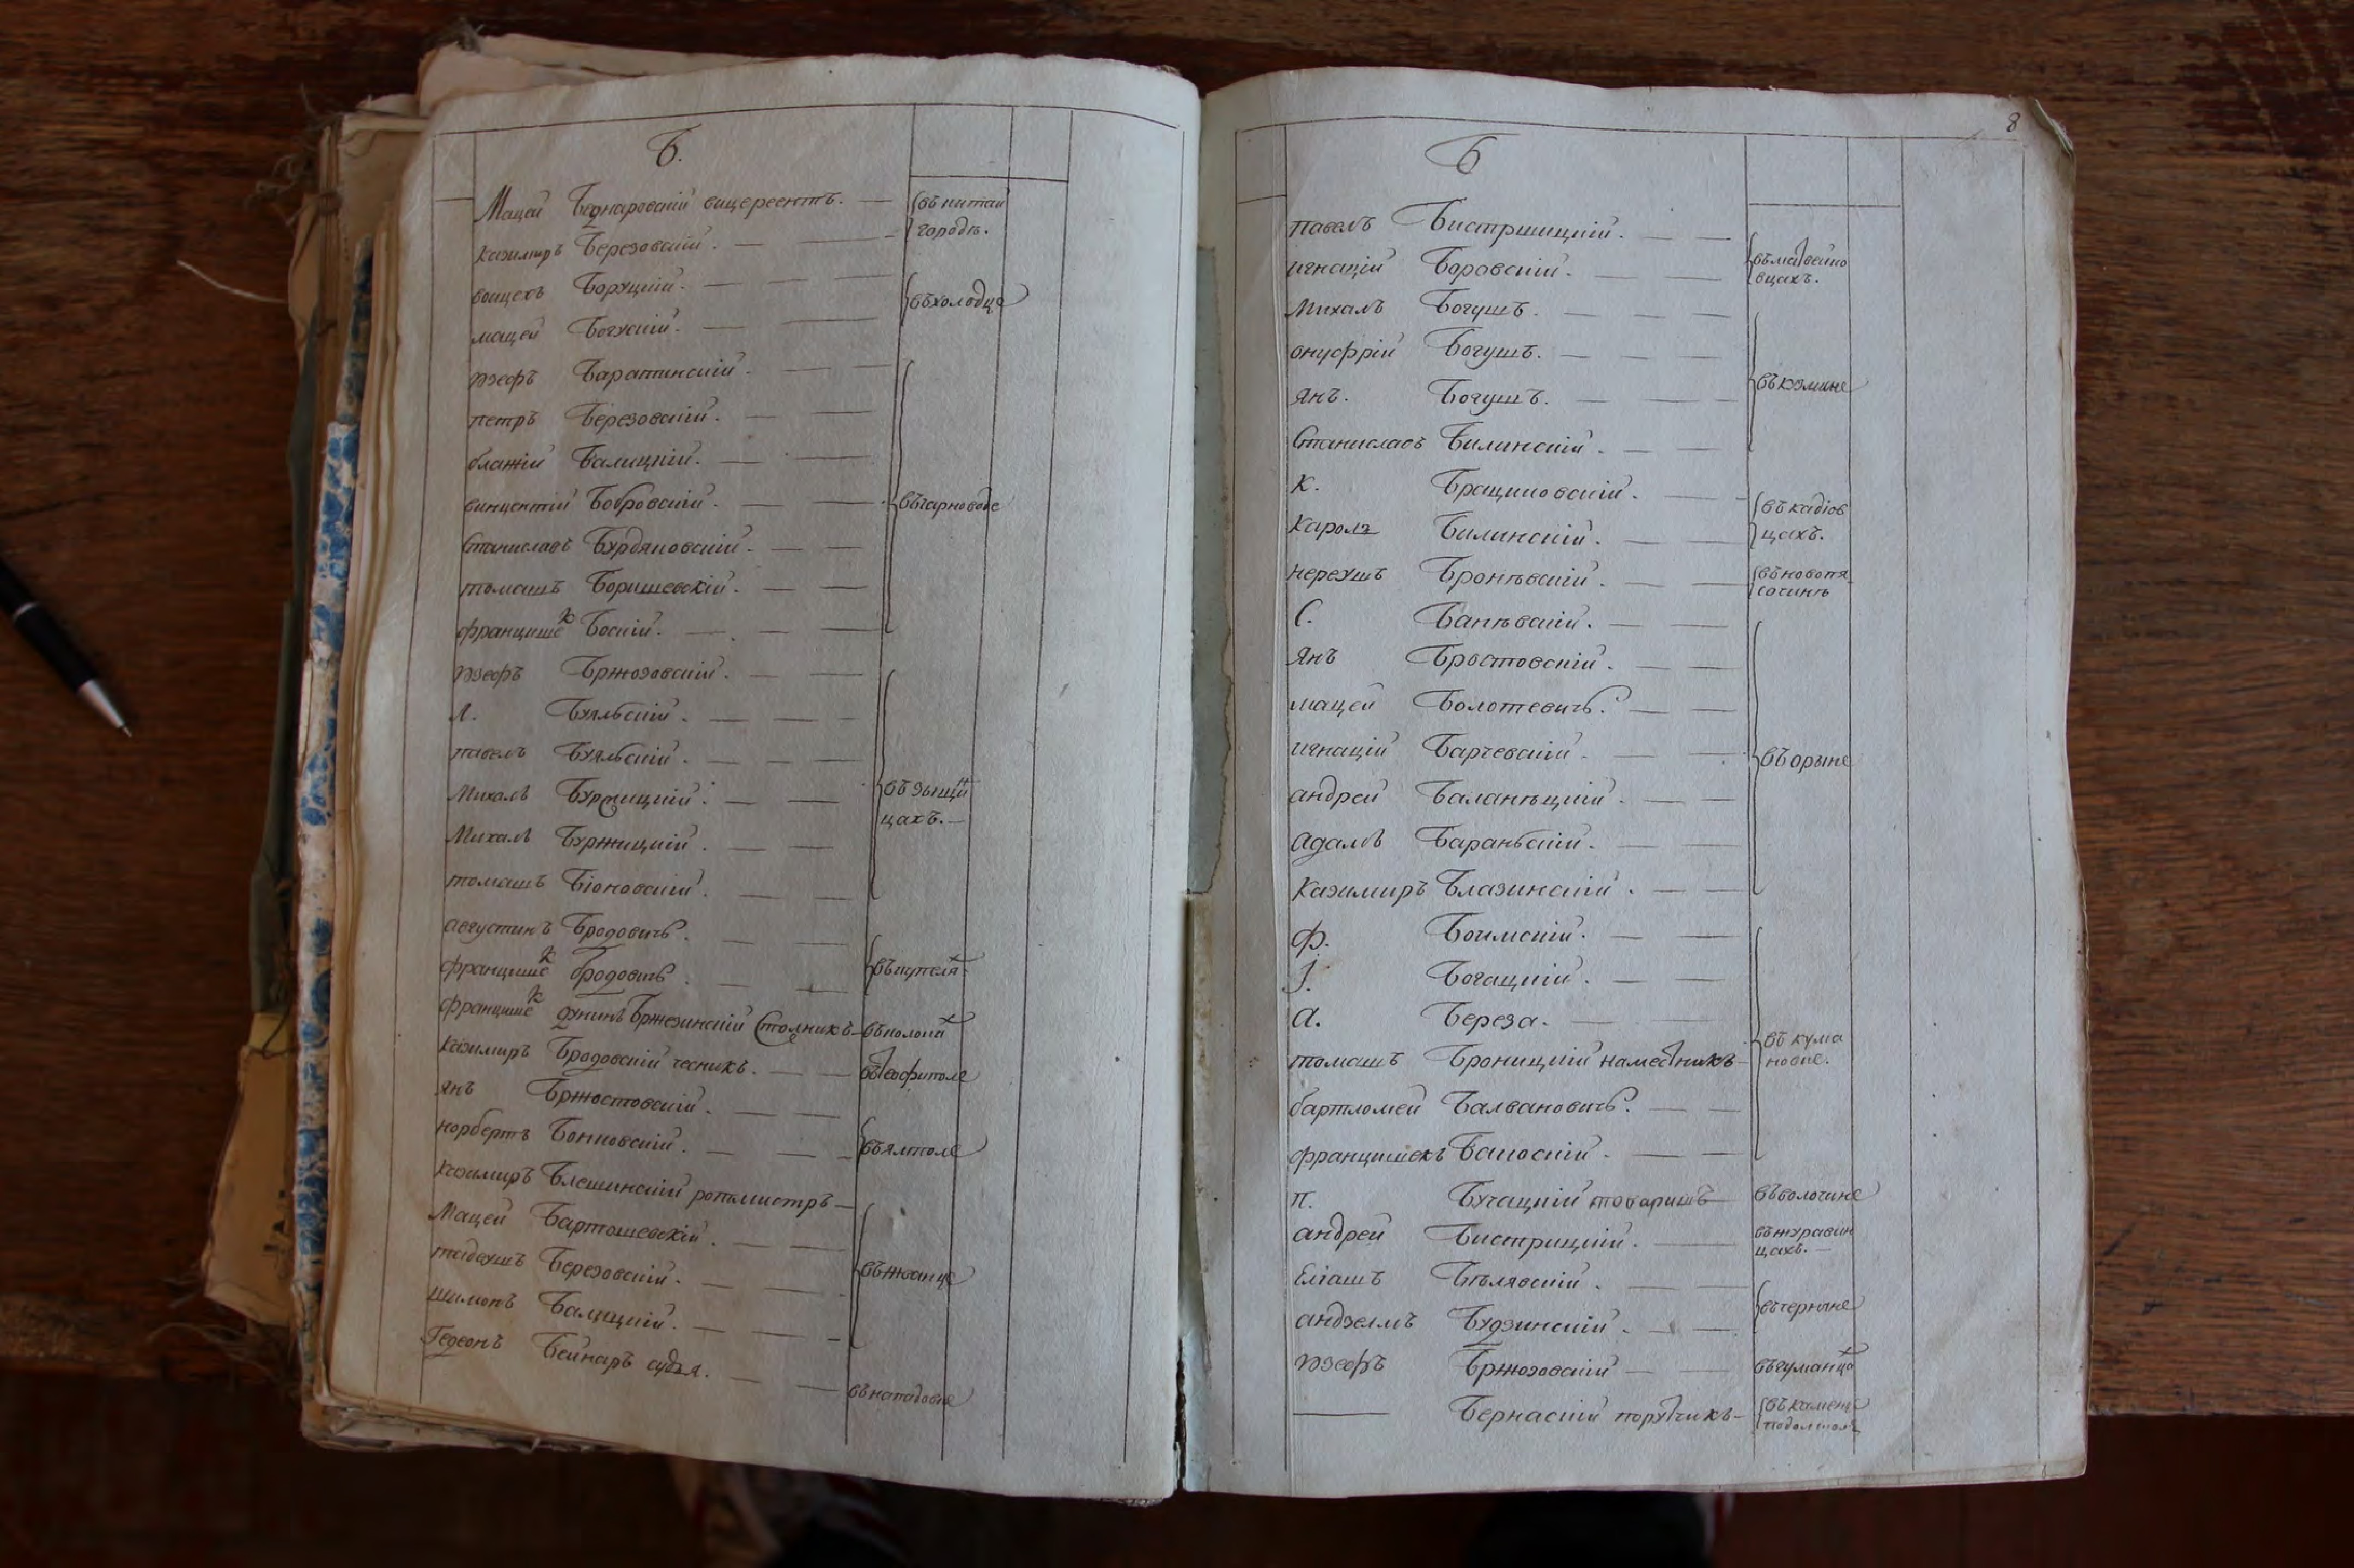 Б.
Мацей Беднаровскій вицереентъ. — въ китай
городѣ.
казимиръ Березовскій.
воицехъ Боруцкій.
въ холодце
мацей Богускій.
юзефъ Баратинскій.
петръ Березовскій.
блажій Балицкій.
винцентій Бобровскій.
въ чарноводе
Станиславъ Бурдяновскій.
томашъ Боришевскій.
францишекъ Боскій.
юзефъ Бржозовскій.
Л. Буяльскій.
павелъ Буяльскій.
Михалъ Буржицкій.
въ зинцах
цахъ.
Михалъ Буржицкій.
томашъ Біоновскій.
августинъ Бродовичъ.
францишек бродовичъ.
францишек дунинъ Бржезинскій Столникъ
казимиръ Бродовскій чесникъ. въ теофиполе
янъ Бржостовскій.
норбертъ Бонковскій. въ ямполе
казимиръ Блешинскій ротмистръ
Мацей Бартошевскій.
тадеушъ Березовскій. въ жванце
шимонъ Балицкій.
Гедеонъ Бейнаръ судья.
8
Б
павелъ Бистршицкій.
игнацій Боровскій. въ матвейко
вцахъ.
Михалъ Богушъ.
онуфрій Богушъ.
въ кузмине
янъ. Богушъ.
Станиславъ Билинскій.
К. Бращиновскій.
въ кадіов
цахъ.
Кароль Билинскій.
нереушъ Бронѣвскій. въ новопя
сочинѣ
С. Банѣвскій.
янъ Бростовскій.
мацей Болотевичъ.
игнацій Барчевскій. въ орыне
андрей Баланѣцкій.
адамъ Бараньскій.
Казимиръ Блазинскій.
ф. Боимскій.
І. Богацкій.
а. Береза.
томашъ Броницкій наместникъ въ кума
новке.
бартломей Балвановичъ.
францишекъ Банскій.
п. Бучацкій товаришъ въ волочине
андрей Бистрицкій. въ журавин
цахъ.
Еліашъ Бѣлявскій.
въ чернине
андзелмъ Будзинскій.
юзефъ Бржозовскій
Бернаскій порутчикъ въ каменце
подолском